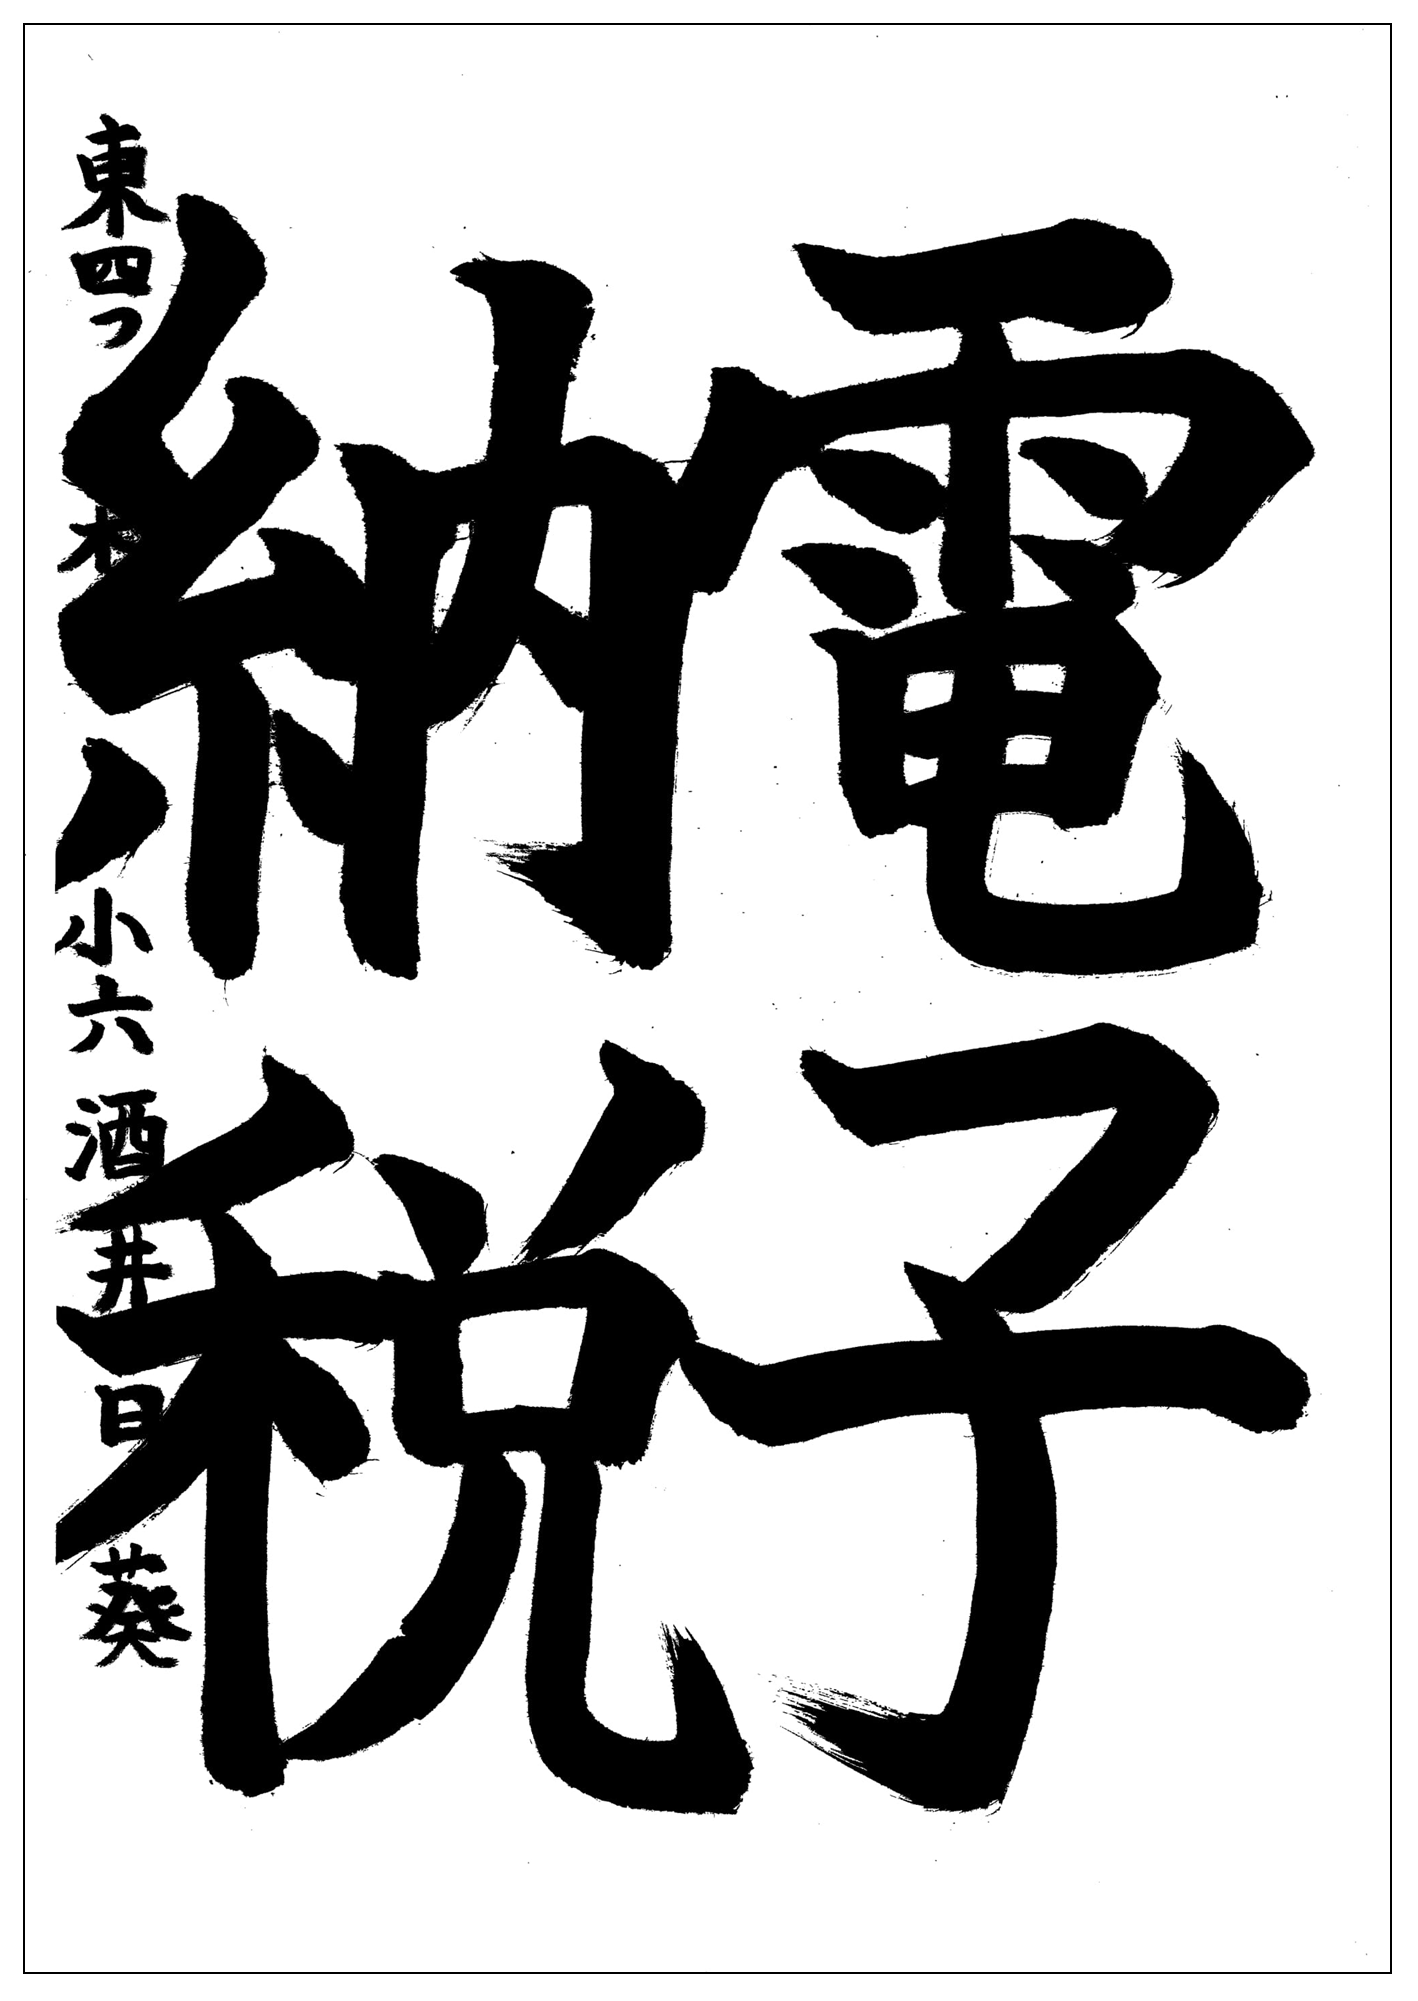 電子
納税
東四つ木小六 酒井日葵